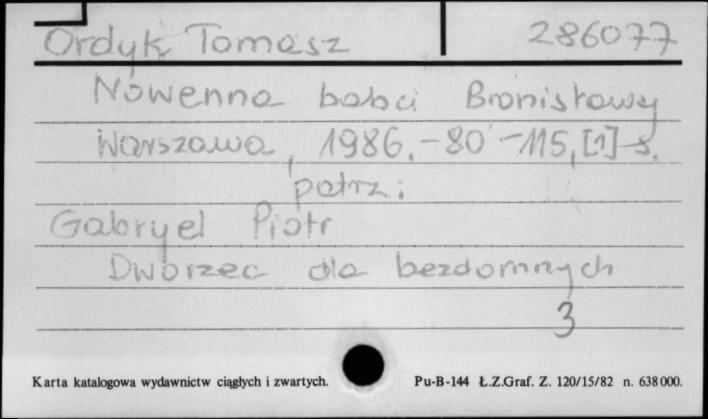 Ordyk Tomasz 286077
Nowenna babci Bronisławy
Warszawa, 1986. - 80 - 115, [1] s.
patrz:
Gabryel Piotr
Dworzec dla bezdomnych
3
Karta katalogowa wydawnictw ciągłych i zwartych. Pu-B-144 Ł.Z.Graf. Z. 120/15/82 n. 638 000.